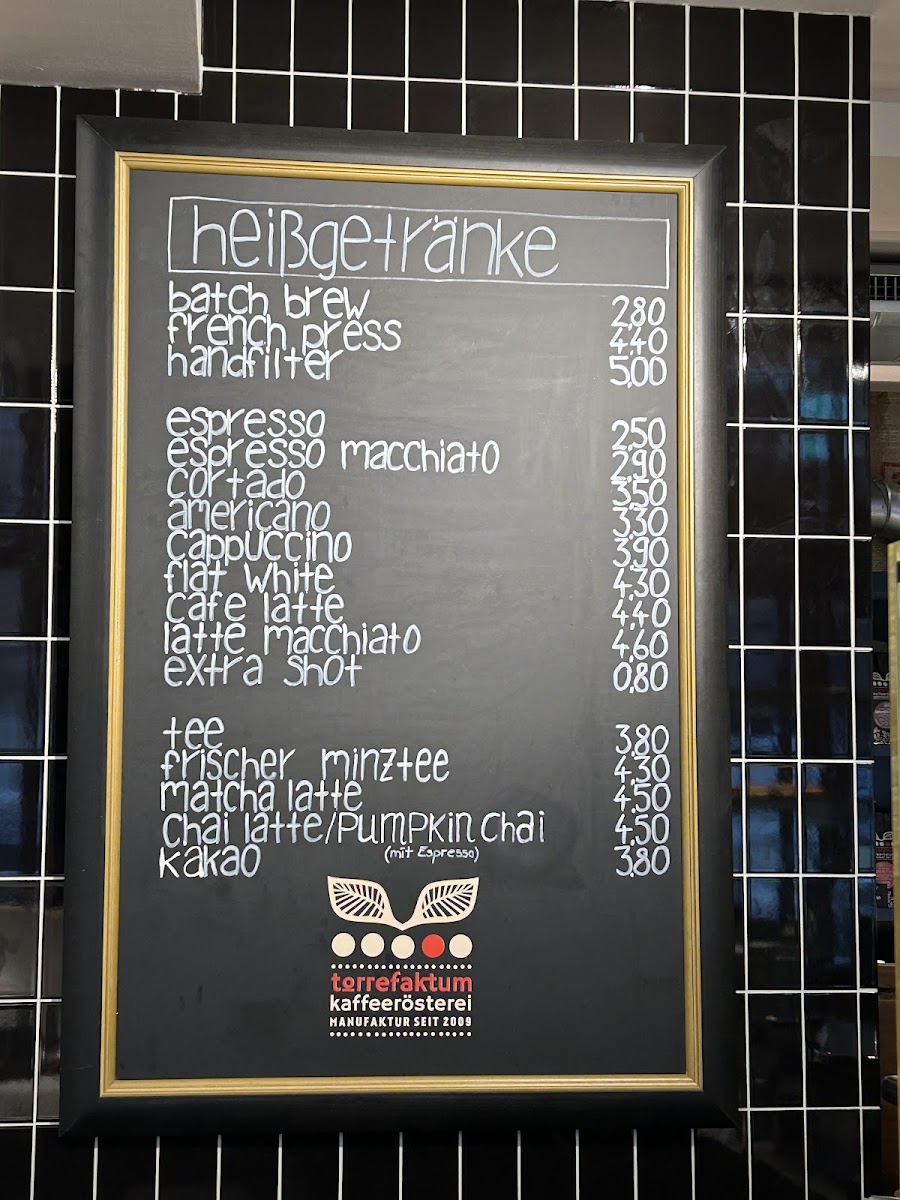 heißgetränke
batch brew 2,80
french press 4,40
handfilter 5,00
espresso 2,50
espresso macchiato 2,90
cortado 3,50
americano 3,30
cappuccino 3,90
flat white 4,30
cafe latte 4,40
latte macchiato 4,60
extra shot 0,80
tee 3,80
frischer minztee 4,30
matcha latte 4,50
chai latte/pumpkin chai 4,50
(mit Espresso)
kakao 3,80
torrefaktum
kaffeerösterei
MANUFAKTUR SEIT 2009